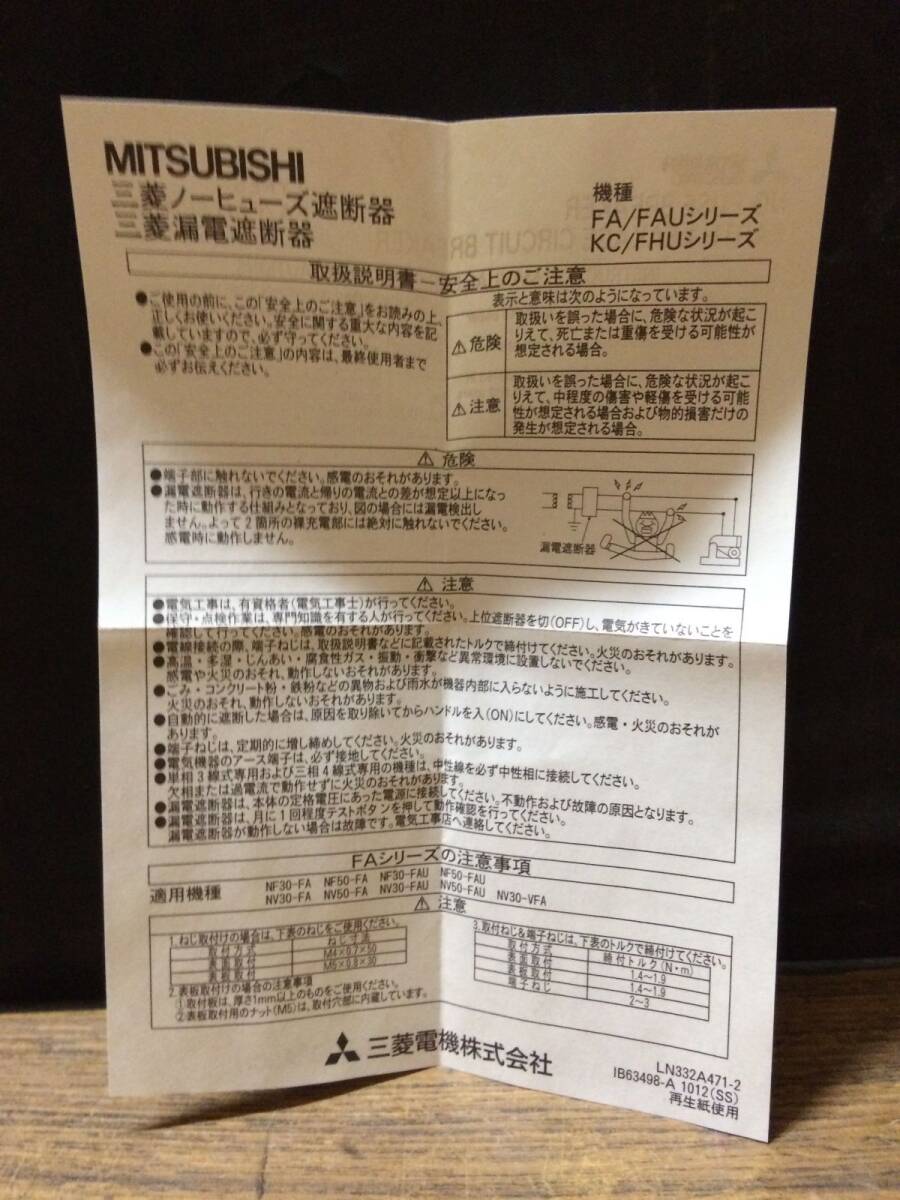 MITSUBISHI
三菱ノーヒューズ遮断器
三菱漏電遮断器
機種
FA/FAUシリーズ
KC/FHUシリーズ
取扱説明書－安全上のご注意
●ご使用の前に、この「安全上のご注意」をお読みの上、
正しくお使いください。安全に関する重大な内容を記
載していますので、必ず守ってください。
●この「安全上のご注意」の内容は、最終使用者まで
必ずお伝えください。
表示と意味は次のようになっています。
⚠危険
取扱いを誤った場合に、危険な状況が起こ
りえて、死亡または重傷を受ける可能性が
想定される場合。
⚠注意
取扱いを誤った場合に、危険な状況が起こ
りえて、中程度の傷害や軽傷を受ける可能
性が想定される場合および物的損害だけの
発生が想定される場合。
⚠ 危険
●端子部に触れないでください。感電のおそれがあります。
●漏電遮断器は、行きの電流と帰りの電流との差が想定以上になっ
た時に動作する仕組みとなっており、図の場合には漏電検出し
ません。よって2箇所の裸充電部には絶対に触れないでください。
感電時に動作しません。
漏電遮断器
⚠ 注意
●電気工事は、有資格者(電気工事士)が行ってください。
●保守・点検作業は、専門知識を有する人が行ってください。上位遮断器を切(OFF)し、電気がきていないことを
確認して行ってください。感電のおそれがあります。
●電線接続の際、端子ねじは、取扱説明書などに記載されたトルクで締付けてください。火災のおそれがあります。
●高温・多湿・じんあい・腐食性ガス・振動・衝撃など異常環境に設置しないでください。
感電や火災のおそれ、動作しないおそれがあります。
●ごみ・コンクリート粉・鉄粉などの異物および雨水が機器内部に入らないように施工してください。
火災のおそれ、動作しないおそれがあります。
●自動的に遮断した場合は、原因を取り除いてからハンドルを入(ON)にしてください。感電・火災のおそれが
あります。
●端子ねじは、定期的に増し締めしてください。火災のおそれがあります。
●電気機器のアース端子は、必ず接地してください。
●単相3線式専用および三相4線式専用の機種は、中性線を必ず中性相に接続してください。
欠相または過電流で動作せずに火災のおそれがあります。
●漏電遮断器は、本体の定格電圧にあった電源に接続してください。不動作および故障の原因となります。
●漏電遮断器は、月に1回程度テストボタンを押して動作確認を行ってください。
漏電遮断器が動作しない場合は故障です。電気工事店へ連絡してください。
FAシリーズの注意事項
適用機種
NF30-FA NF50-FA NF30-FAU NF50-FAU
NV30-FA NV50-FA NV30-FAU NV50-FAU NV30-VFA
⚠ 注意
1.ねじ取付けの場合は、下表のねじをご使用ください。
取付方式 ねじ寸法
表面取付 M4×0.7×50
表板取付 M5×0.8×30
2.表板取付けの場合の注意事項
①取付板は、厚さ1mm以上のものをご使用ください。
②表板取付用のナット(M5)は、取付穴部に内蔵しています。
3.取付ねじ&端子ねじは、下表のトルクで締付けてください。
取付方式 締付トルク(N・m)
表面取付 1.4～1.9
表板取付 1.4～1.9
端子ねじ 2～3
三菱電機株式会社
LN332A471-2
IB63498-A 1012(SS)
再生紙使用